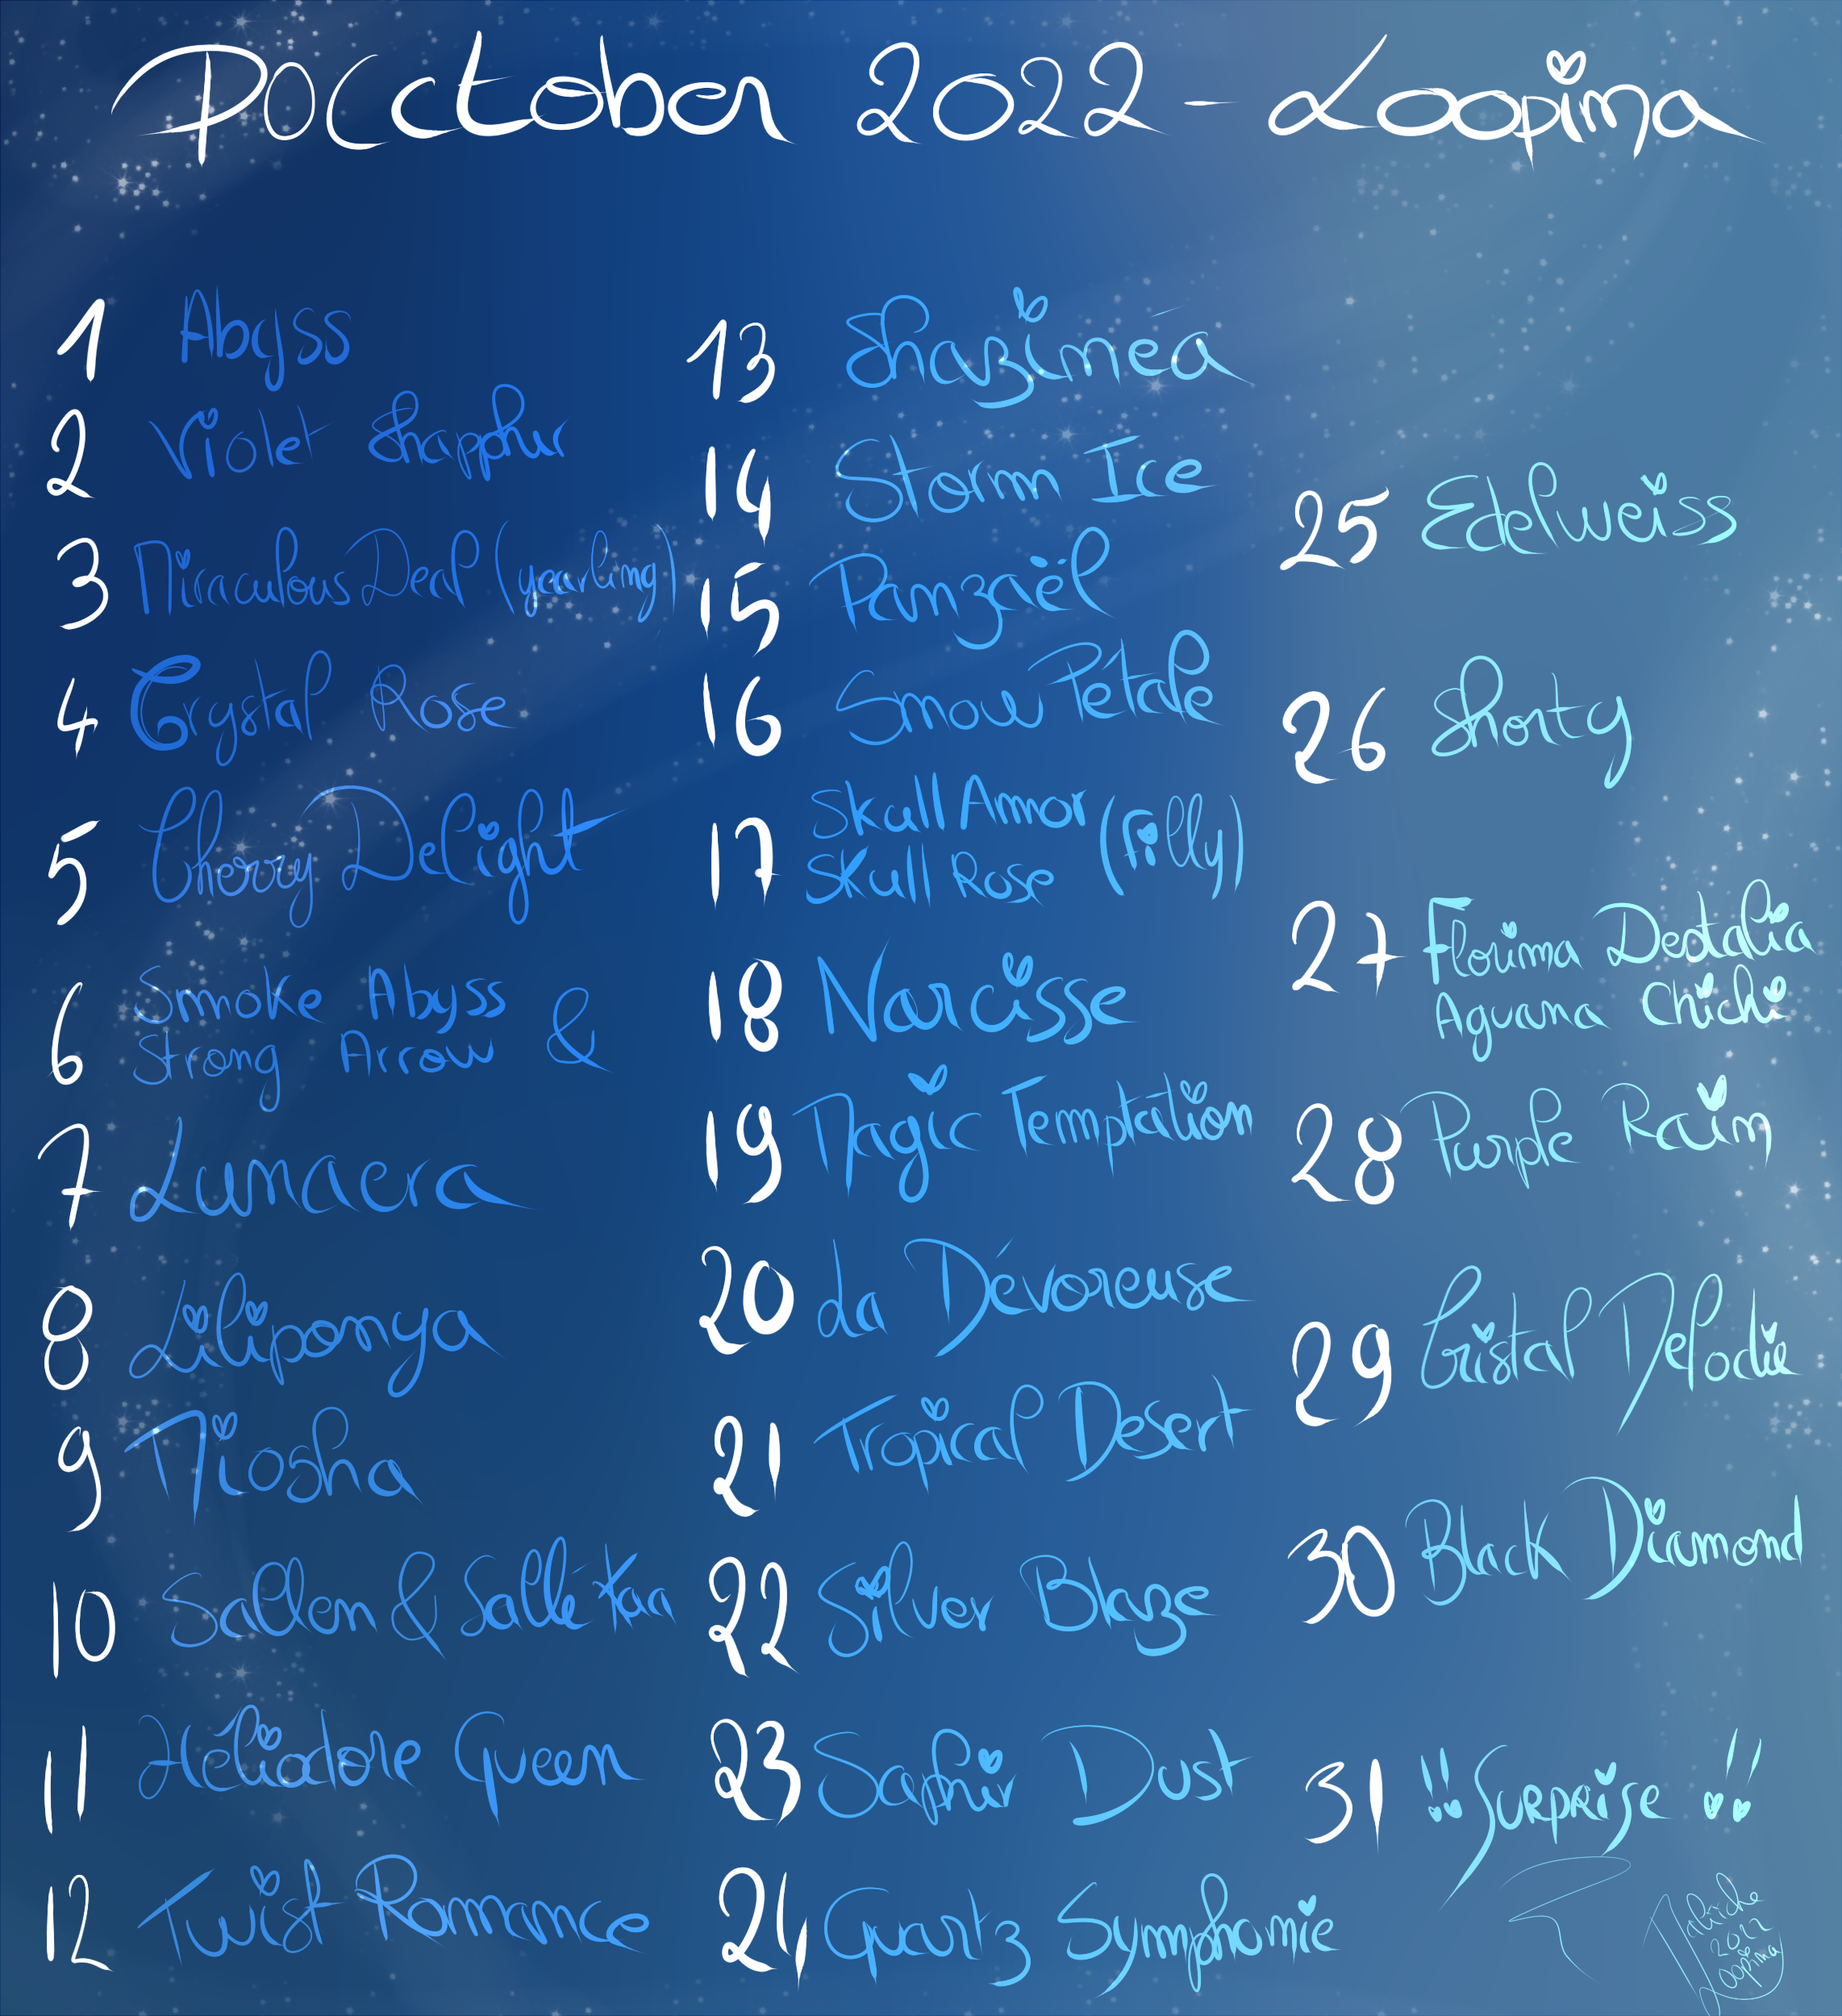 POCctober 2022 - Loopima
1 Abyss
2 Violet Shapphir
3 Miraculous Deal (yearling)
4 Crystal Rose
5 Cherry Delight
6 Smoke Abyss
Strong Arrow &
7 Lunaera
8 Liliponya
9 Miosha
10 Sallen & Sallékaa
11 Héliodore Queen
12 Twist Romance
13 Shaziméa
14 Storm Ice
15 Ranzaël
16 Snow Pétale
17 Skull Amor
Skull Rose (filly)
18 Narcisse
19 Magic Temptation
20 La Dévoreuse
21 Tropical Desert
22 Silver Blaze
23 Saphir Dust
24 Quartz Symphonie
25 Edelweiss
26 Shorty
27 Florima Destalia
Aquana Chichi
28 Purple Rain
29 Cristal Mélodie
30 Black Diamond
31 !! Surprise !!
2022
Loopima